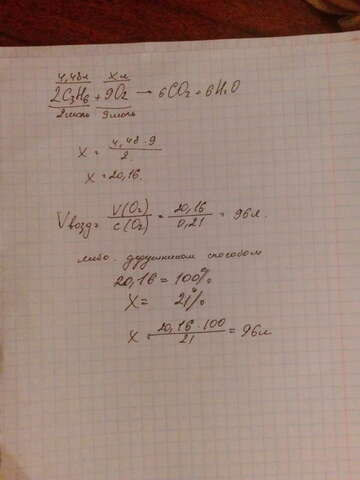 4,48л хл
2C3H6 + 9O2 → 6CO2 + 6H2O
2моль 9моль
X = 4,48·9 / 2
X = 20,16.
Vвозд= V(O2) / C(O2) = 20,16 / 0,21 = 96л.
либо другим способом
20,16 = 100%
X = 21%
X = 20,16·100 / 21 = 96л